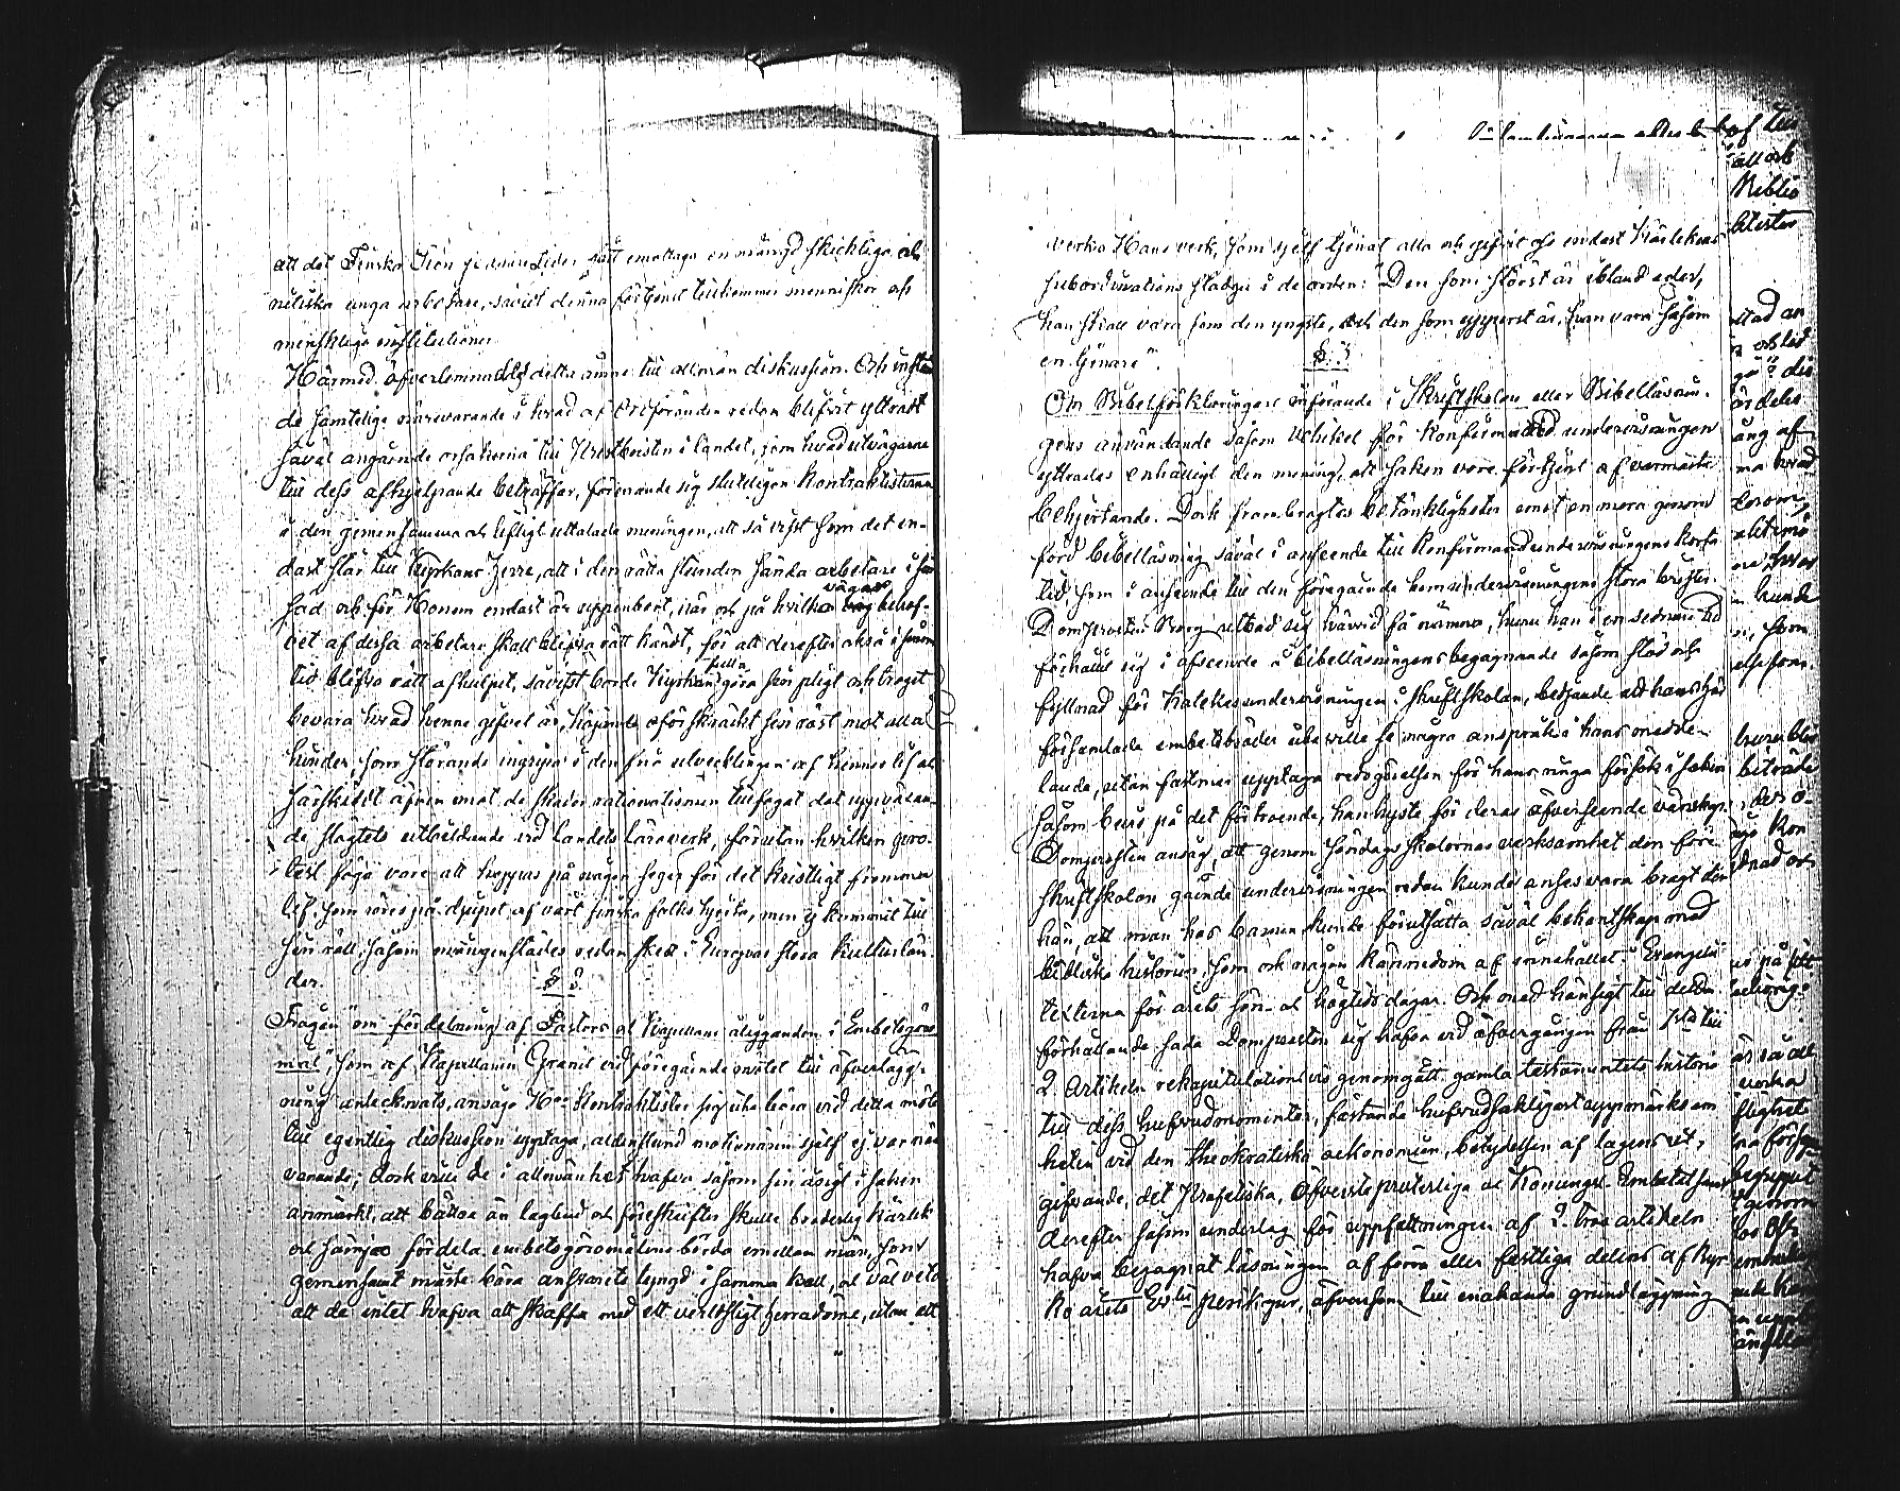 att det Finska Sion på annan Leder sätt emottaga en mängd skickliga och
nitiska unga arbetare, såvidt denna förtjenst tillkommer menniskor och
menskliga institutioner.
Härmed öfverlemnades detta ämne till allmän diskussion. Och instäm-
de samtelige närvarande i hvad af Ordföranden redan blifvit yttradt
såväl angående orsakerna till Prestbristen i landet, som hvad utvägarne
till dess afhjelpande beträffar, förenande sig slutligen Kontraktisterna
i den gemensamma och lifligt uttalade meningen, att så visst som det en-
dast står till Kyrkans Herre, att i den rätta stunden sända arbetare i sin
säd och för Honom endast är uppenbart, när och på hvilka vägar behof-
vet af dessa arbetare skall blifva rätt kändt, för att derefter också i sinom
tid blifva rätt afhulpet, såvisst borde Kyrkan fullgöra sin pligt och troget
bevara hvad henne gifvet är, höjande oförskräckt sin röst mot alla
hinder, som störande ingripa i den fria utvecklingen af hennes lif och
särskildt äfven mot de skador rationalismen tillfogat det uppväxan-
de slägtets utbildande vid landets läroverk, förutan hvilken pro-
test föga vore att hoppas på någon seger för det kristligt fromma
lif, som röres på djupet af vårt finska folks hjerta, men ej kommit till
sin rätt, såsom mångenstädes redan sker i Europas stora kulturlän-
der.
§ 2.
Frågan "om fördelning af Pastors och Kapellans åligganden i Embetsgöro-
mål", som af Kapellanen Granit vid föregående mötet till öfverlägg-
ning antecknats, ansågo Hrr Kontraktister sig icke böra vid detta möte
till egentlig diskussion upptaga, aldenstund motionären sjelf ej var när-
varande; dock ville de i allmänhet hafva såsom sin åsigt i saken
anmärkt, att bättre än lagbud och föreskrifter skulle broderlig kärlek
och sämja fördela embetsgöromålens börda emellan män, som
gemensamt måste bära ansvarets tyngd i samma kall, och väl veta
att de intet hafva att skaffa med ett verldsligt herradöme, utan att
verka Hans verk, som sjelf tjenat alla och gifvit oss endast kärlekens
subordinations stadga i de orden: "Den som störst är ibland eder,
han skall vara som den yngste, och den som ypperst är, han vare såsom
en tjenare".
§ 3.
Om Bibelförklaringars införande i Skriftskolan eller Bibelläsnin-
gens användande såsom vehikel för Konfirmand undervisningen
yttrades enhälligt den mening, att saken vore förtjent af varmaste
behjertande. Dock frambragtes betänkligheter emot en mera genom-
förd bibelläsning såväl i anseende till Konfirmandundervisningens korta
tid som i anseende till den föregående hemundervisningens stora brister.
Domprosten Borg utbad sig härvid få nämna, huru han i en sednare tid
förhållit sig i afseende å bibelläsningens begagnande såsom stöd och
fyllnad för Katekesundervisningen i skriftskolan, bedjande att hans här
församlade embetsbröder icke ville se några anspråk i hans medde-
lande, utan fastmer upptaga redogörelsen för hans ringa försök i saken
såsom bevis på det förtroende, han hyste för deras öfverseende vänskap.
Domprosten ansåg, att genom söndagsskolornas verksamhet den före
skriftskolan gående undervisningen redan kunde anses vara bragt der-
hän, att man hos barnen kunde förutsätta såväl bekantskap med
bibliska historien, som ock någon kännedom af innehållet i Evangelii
texterna för årets sön- och högtids dagar. Och med hänsigt till detta
förhållande sade Domprosten sig hafva vid öfvergången från 1sta till
2. Artikeln rekapitulationsvis genomgått gamla testamentets historie
till dess hufvudmomenter, fästande hufvudsakligast uppmärksam-
heten vid den theokratiska oekonomien, betydelsen af lagens ut-
gifvande, det Profetiska, Öfversteprästerliga och Konungsl. Embetet samt
derefter såsom underlag för uppfattningen af 2. tros artikeln
hafva begagnat läsningen af förra eller festliga delen af Kyr-
ko årets Ev:lii perikoper, äfvensom till enahanda grundläggning